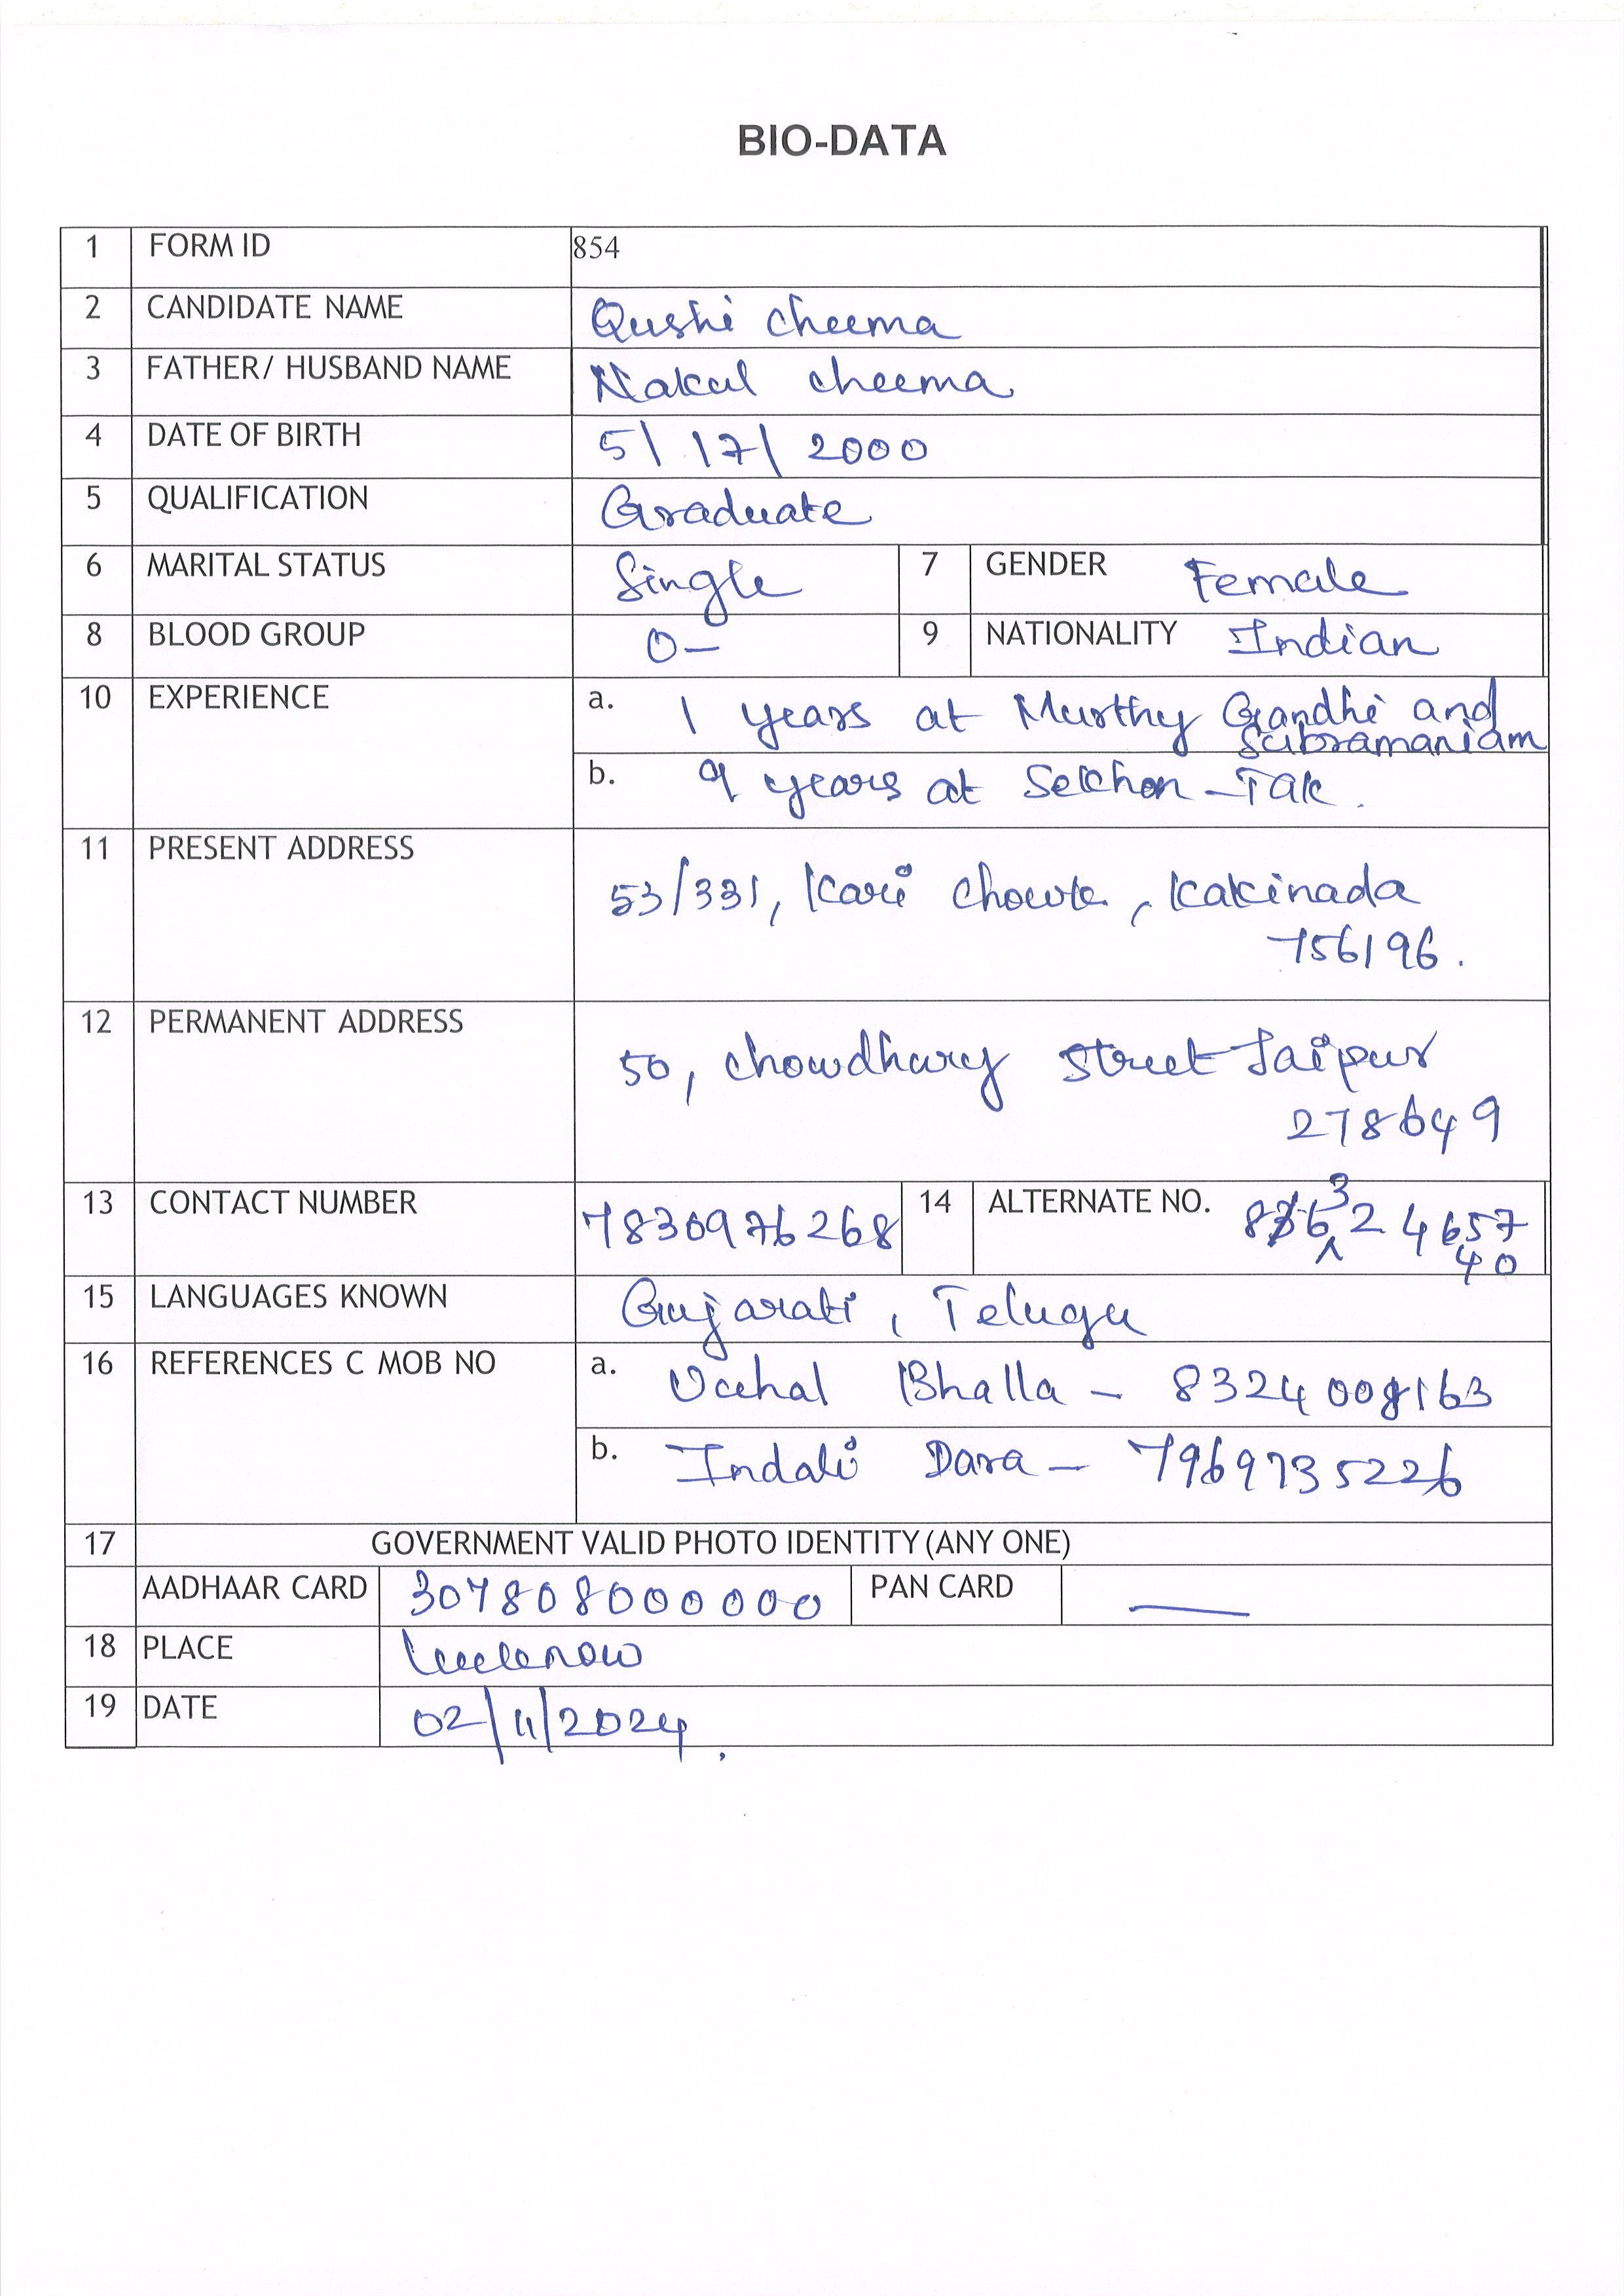 BIO-DATA
1 FORM ID 854
2 CANDIDATE NAME Qushi cheema
3 FATHER/ HUSBAND NAME Nakul cheema
4 DATE OF BIRTH 5/17/2000
5 QUALIFICATION Graduate
6 MARITAL STATUS Single 7 GENDER Female
8 BLOOD GROUP O- 9 NATIONALITY Indian
10 EXPERIENCE a. 1 years at Murthy Gandhi and
Subramaniam
b. 9 years at Sekhon-Tak.
11 PRESENT ADDRESS
53/331, Kari Chowk, Kakinada
756196.
12 PERMANENT ADDRESS
50, chowdhary street Jaipur
278649
13 CONTACT NUMBER 7830976268 14 ALTERNATE NO.
15 LANGUAGES KNOWN Gujarati, Telugu
16 REFERENCES C MOB NO a. Uchal Bhalla - 8324008163
b. Indali Dara - 7969735226
17 GOVERNMENT VALID PHOTO IDENTITY (ANY ONE)
AADHAAR CARD 307808000000 PAN CARD —
18 PLACE Lucknow
19 DATE 02/11/2024.